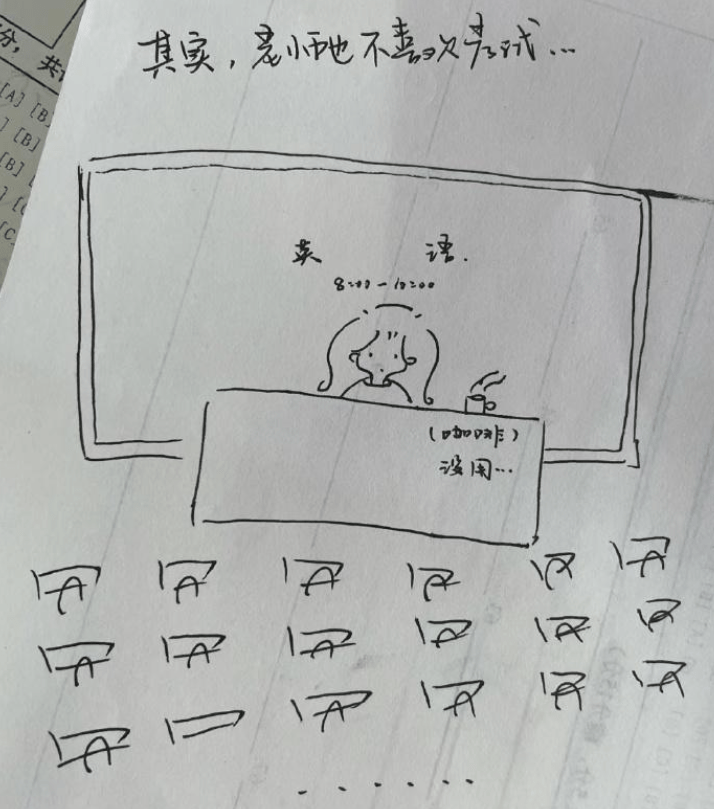 其实，老师也不喜欢考试...
英 语.
8:00-10:00
(咖啡)
没用...
分，共
[A] [B]
] [B]
[B] [
] [C
[C